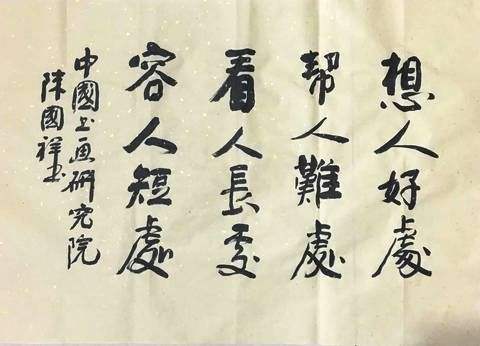 想人好處
幫人難處
看人長處
容人短處
中國书画研究院
陳國祥书